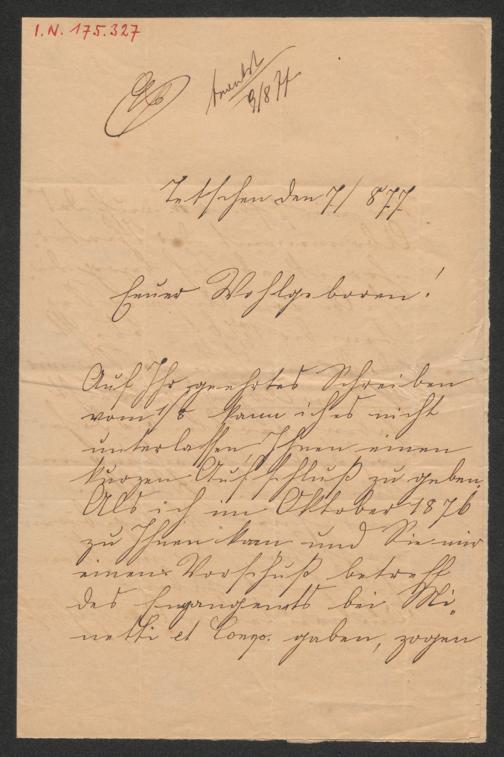 I.N. 175.327
9/8 77
Tetschen den 7/ 877
Euer Wohlgeboren!
Auf Ihr geehrtes Schreiben
vom 1/8 kann ich es nicht
unterlassen, Ihnen einen
kurzen Aufschluß zu geben.
Als ich im Oktober 1876
zu Ihnen kam und Sie mir
einen Vorschuß betreff
des Engangemts bei Mi„
netti et Comp. gaben, zogen